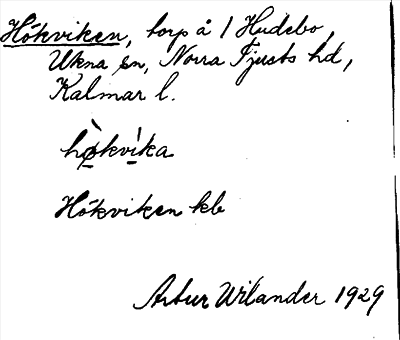 Hökviken, torp å 1 Hudebo,
Ukna sn, Norra Tjusts hd,
Kalmar l.
hò̤kvi̠̍ka
Hökviken kb
Artur Wilander 1929